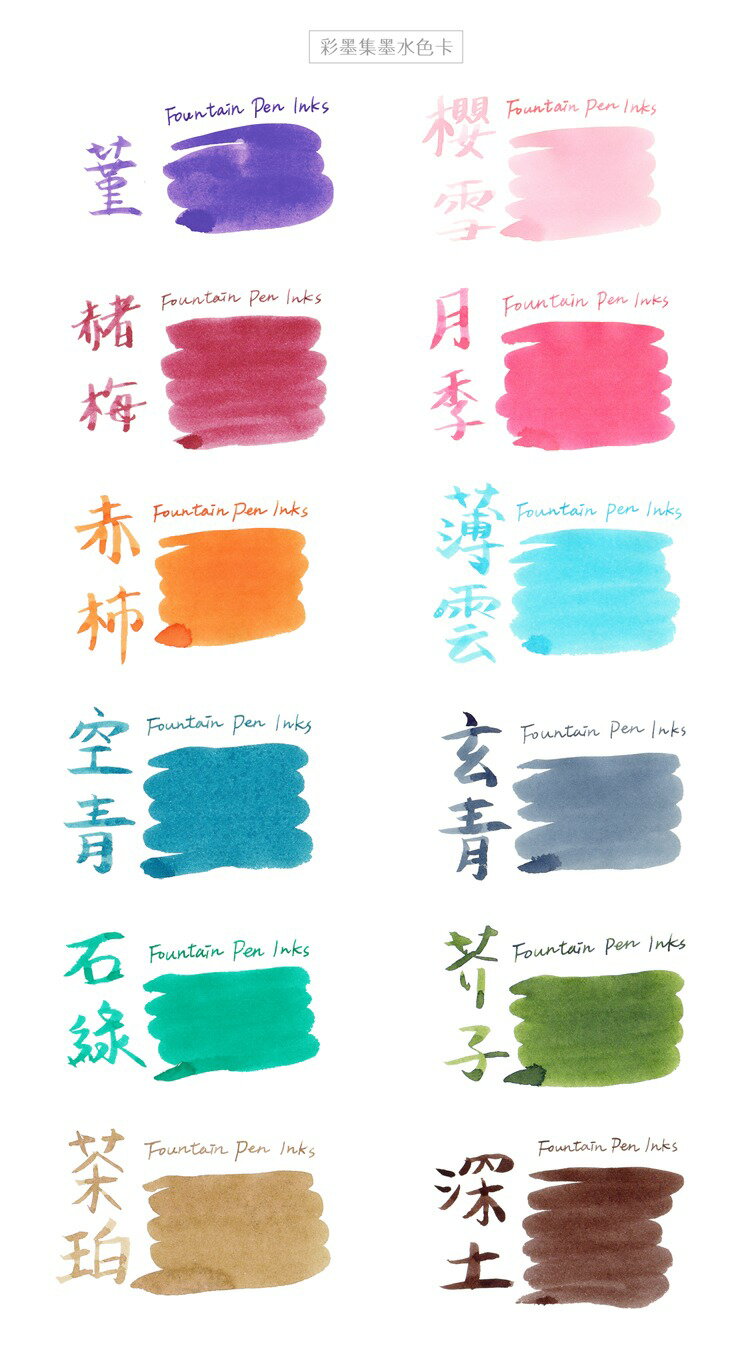 彩墨集墨水色卡
Fountain Pen Inks
堇
Fountain Pen Inks
櫻雪
Fountain Pen Inks
赭梅
Fountain Pen Inks
月季
Fountain Pen Inks
赤柿
Fountain Pen Inks
薄雲
Fountain Pen Inks
空青
Fountain Pen Inks
玄青
Fountain Pen Inks
石綠
Fountain Pen Inks
芥子
Fountain Pen Inks
茶珀
Fountain Pen Inks
深土